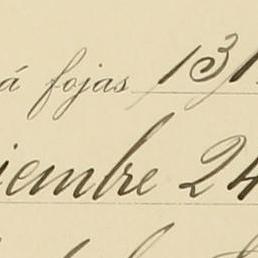 á fojas 131
iembre 24